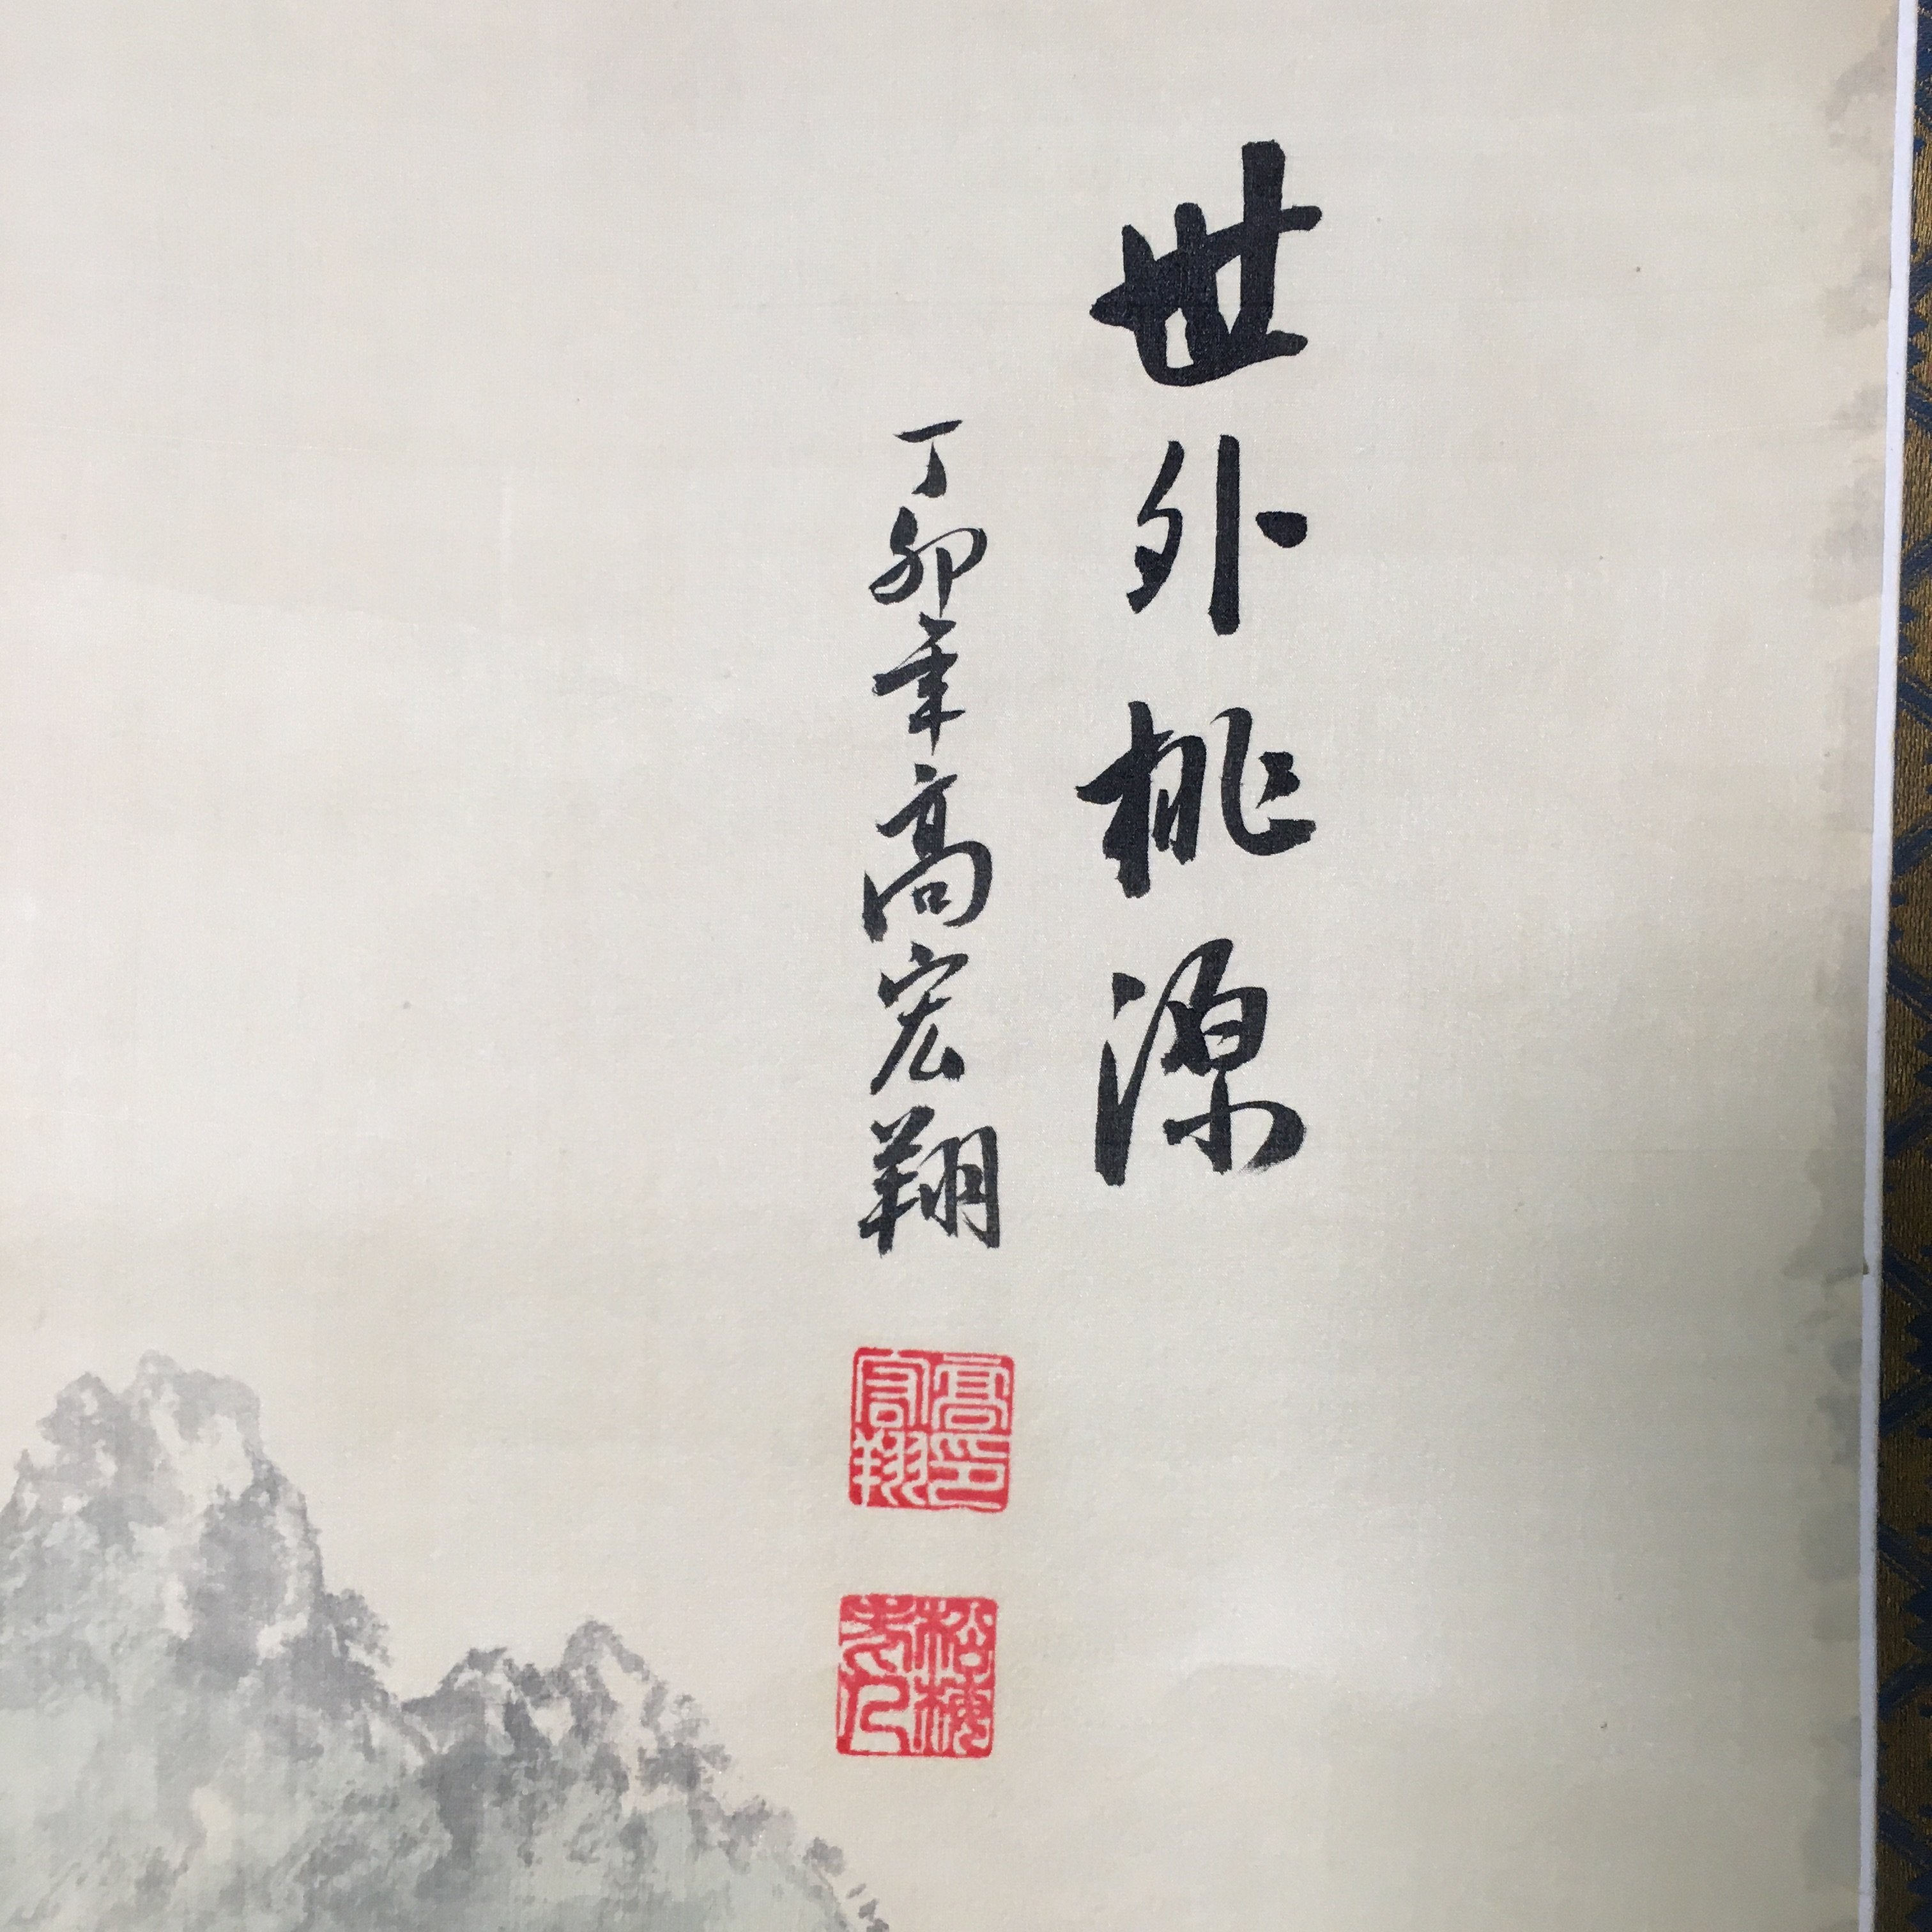 世外桃源
丁卯年高宏翔
高印宏翔
松梅老人